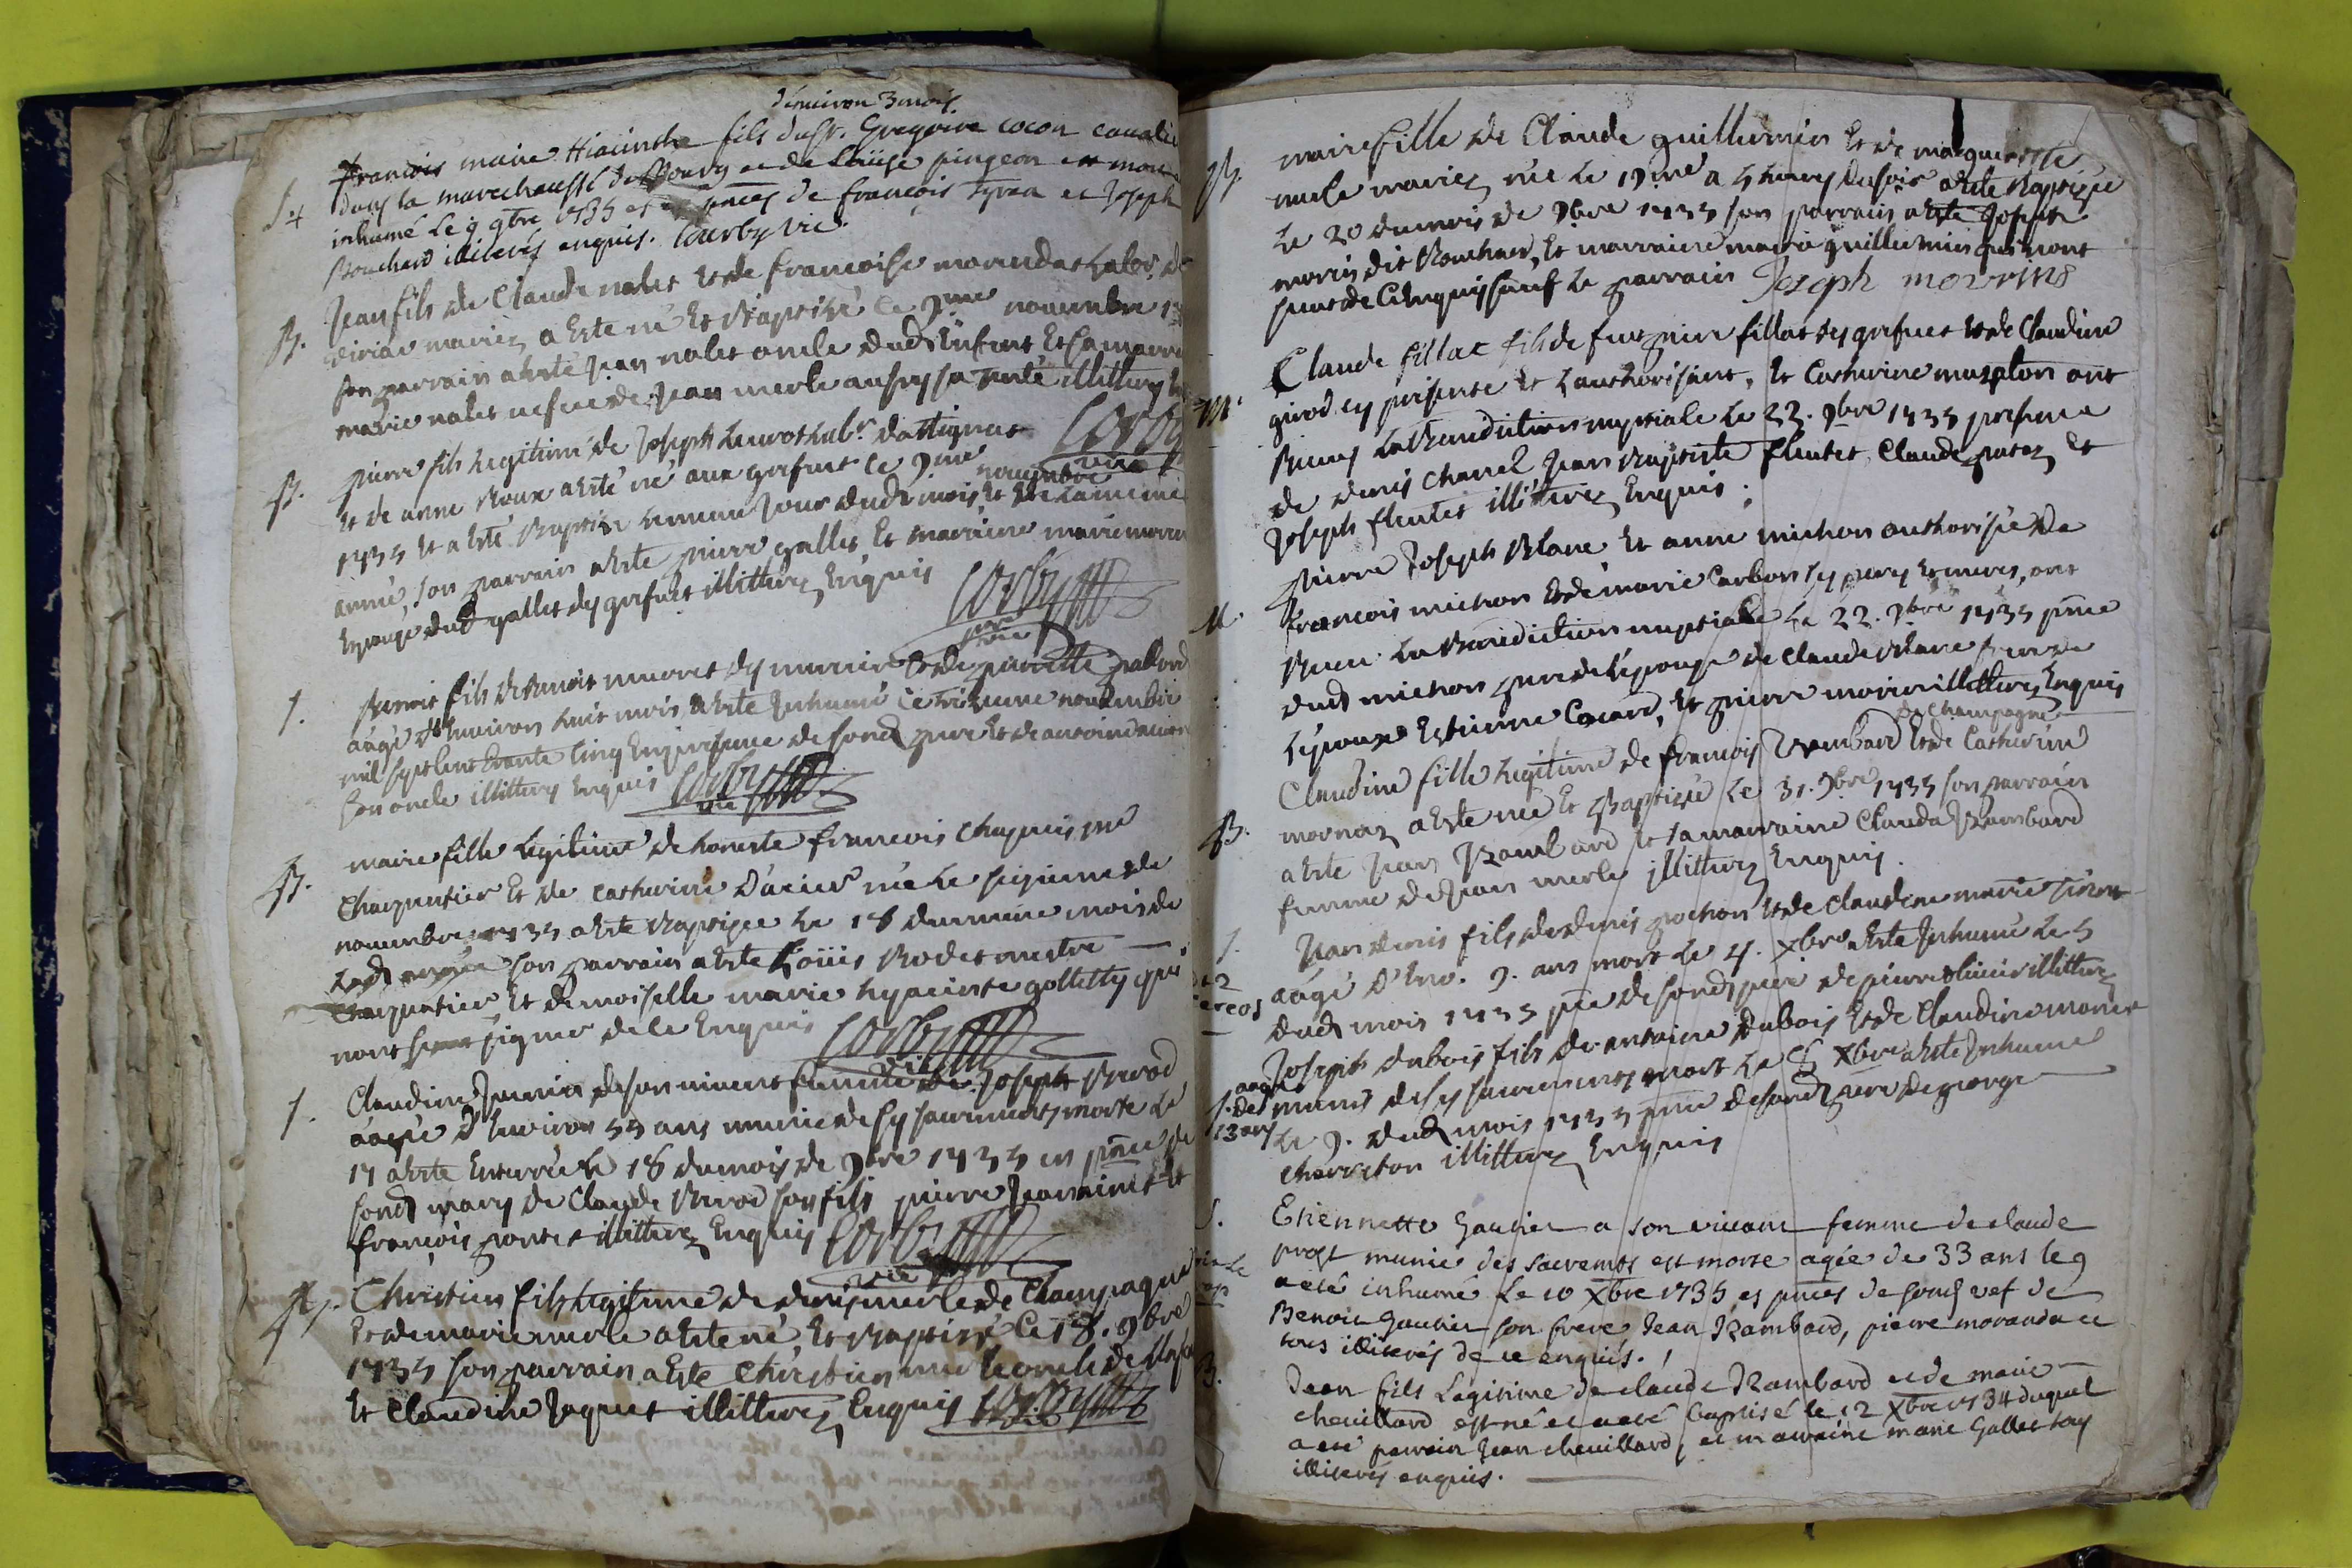 d'enuiron 3 mois
S+ francois marie Hiacinthe fils du sr. Gregoire cocon caualie
dans la marechaussé de Bourg et de Loüise pingeon est mort
inhumé le 9 9bre 1735 es pnces de francois tyran et Joseph
Bouchard illiterés enquis. Courby vic
B. Jean fils de Claude nalet et de francoise morandat labr. de
mariez a Esté né Et Baptisé Ce 9me nouembre 1735
son parrain a Esté Jean nalet oncle dudt Enfant Et sa marra
marie nalet de Jean merle aussy sa illitturez
B. pierre fils legitime de Joseph labr. dattignat
Et de anne Roux a Esté né aux grefuet Ce 9me nouembre
1735 Et a Esté Baptisé le meme Jour dudt mois Et de La meme
année, son parrain a Esté pierre gallet Et marraine marie
Epouse dud gallet des grefuet illitturez Enquis Corby
pre vic
J. Benoit fils de Benoit mueret et de pierrette
aagé d'Enuiron huit mois, a Esté Inhumé Ce nouembre
mil sept Cent trente Cinq En presence de sondt pere Et de
son oncle illitturez Enquis Corby
vic
B. marie fille Legitime de honeste francois Chapuis me
Charpentier Et de Catherine D'acier née Le de
nouembre 1735 a Esté Baptisée Le 18 du meme mois de
son parrain a Esté Loüis Rodet mestre
Charpentier, Et demoiselle marie hyacinte golletty qui
nont signé de Ce Enquis Corby
vic
J. Claudine de son viuant femme de Joseph Brevod
aagée d'Enuiron 55 ans munie de ses sacrements morte Le
17 a Esté Enterrée Le 18 du mois de 9bre 1735 en pnce de
sondt mary de Claude Brevod son fils pierre Et
francois illitturez Enquis Corby
vic
B. Christien fils Legitime de denis merle de Champagne
Et de marie merle a Esté né, Et Baptisé Ce 18. 9bre
1735 son parrain a Esté Christien
Et Claudine Jaquet illitturez Enquis Corby
B. marie fille de Claude guillermin Et de marguerite
merle mariez née Le 19me a 5 heures du soir a Esté Baptisée
Le 20 du mois de 9bre 1735 son parrain a Esté Joseph
morin dit Bouchard, Et marraine marie guillermin qui nont
de Ce Enquis sauf Le parrain Joseph morins
M. Claude fillat fils de feu pierre fillat des grefuet Et de Claudine
girod cy presente Et Lauthorisant, Et Catherine mazplon ont
Receu La Benediction nuptiale Le 22. 9bre 1735 presence
de denis Charrel Jean Baptiste fleutet, Claude Et
Joseph fleutet illitturez Enquis.
M. pierre Joseph Blanc Et anne michon authorisée de
francois michon Et de marie Carbon ses pere Et mere, ont
Receu La Benediction nuptiale Le 22. 9bre 1735 pnce
dudt michon pere de l'Epouse de Claude Blanc frere de
L'Epoux Estienne Cocard, Et pierre morier illitturez Enquis
de Champagne
B. Claudine fille Legitime de francois Rambard Et de Catherine
mornaz a Esté née Et Baptisée Le 31. 9bre 1735 son parrain
a Esté Jean Rambard Et sa marraine Clauda Rambard
femme de Jean merle illitturez Enquis.
J. Jean denis fils de denis pochon Et de Claudine marie
aagé D'Env. 9. ans mort Le 4. Xbre a Esté Inhumé Le 5
dudt mois 1735 pnce de sondt pere de pierre oliuier illitturez
Joseph dubois fils de antoine dubois Et de Claudine monet
J. aagé de 13 ans munis de ses sacrements mort Le 8 Xbre a Esté Inhumé
Le 9. dudt mois 1735 pnce de sondt pere de george
Charreton illitturez Enquis
S. Etiennette Gautier a son viuant femme de claude
prost munie des sacremts est morte agée de 33 ans le 9
a eté inhumé Le 10 Xbre 1735 es pnces de sondt vef de
Benoit Gautier son frere, Jean Rambard, pierre morandat et
tous illiterés de ce enquis.
B. Jean fils Legitime de claude Rambard et de marie
cheuillard est né et a eté baptisé le 12 Xbre 1734 duquel
a eté parrain Jean cheuillard, et marraine marie Gallet tous
illiterés enquis.